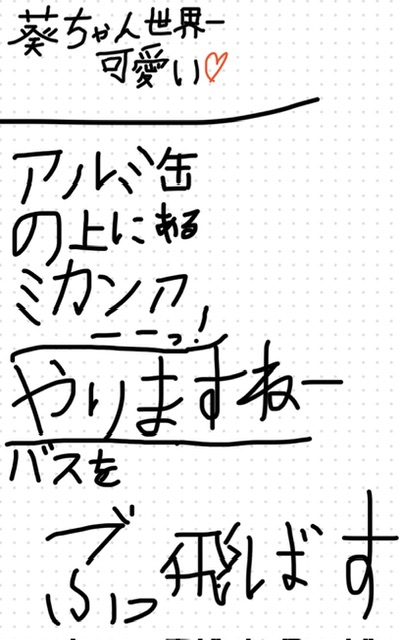 葵ちゃん世界一
可愛い♡
アルミ缶
の上にある
ミカンァ
ーーっ!
やりますねー
バスを
ぶっ飛ばす